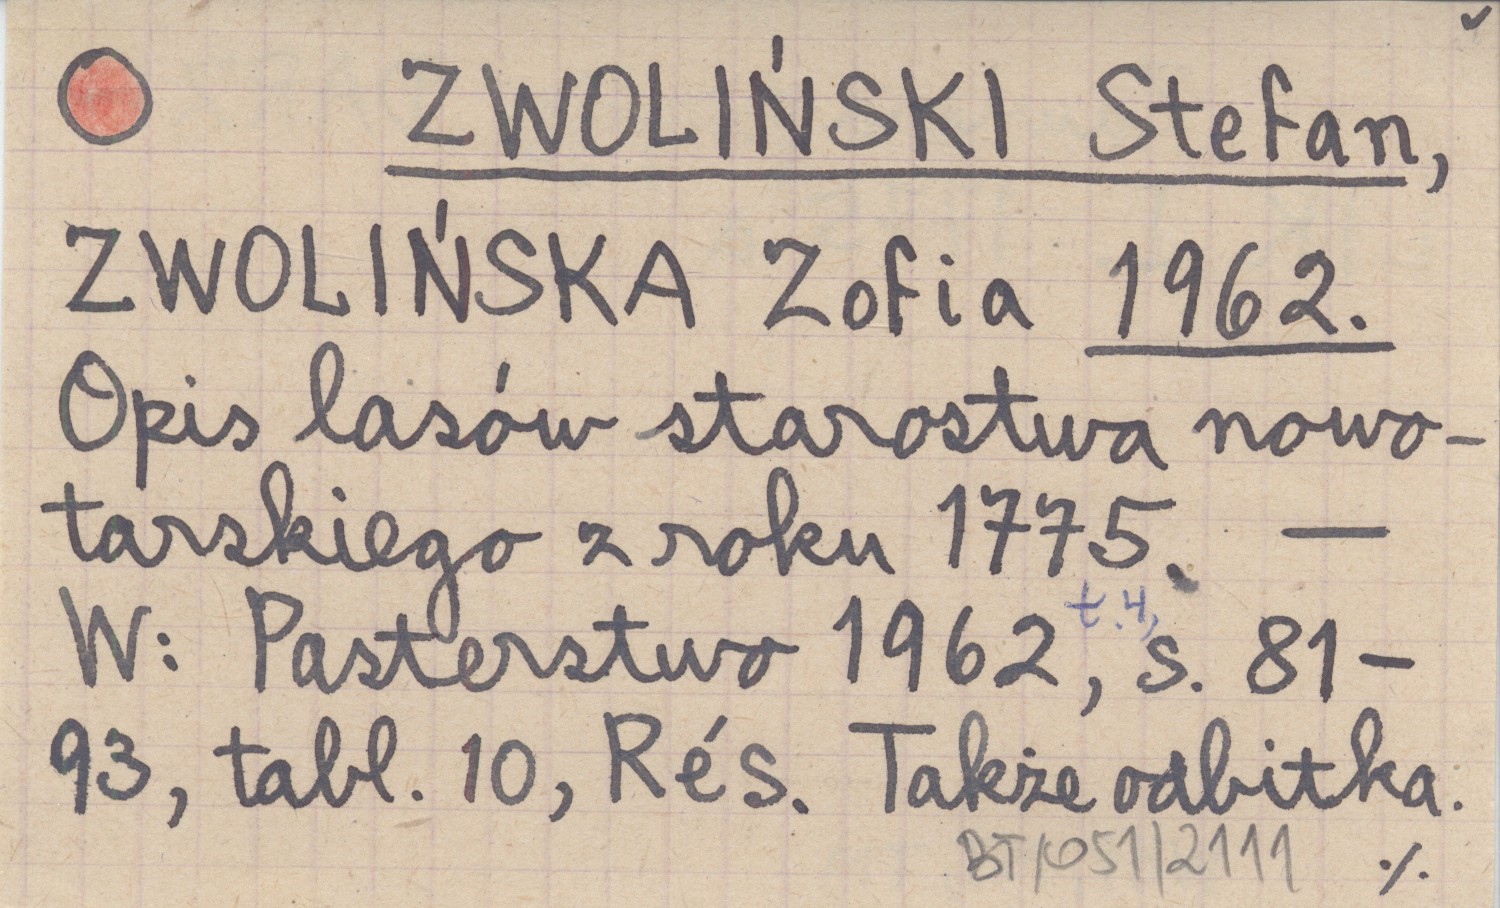 ZWOLIŃSKI Stefan,
ZWOLIŃSKA Zofia 1962.
Opis lasów starostwa nowo-
tarskiego z roku 1775. —
W: Pasterstwo 1962, t.4, s. 81-
93, tabl. 10, Rés. Także odbitka.
BT/051/2111 ./.